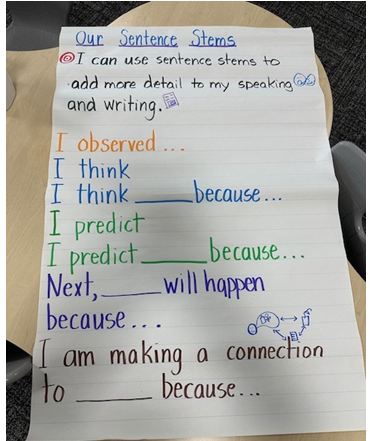 Our Sentence Stems
I can use sentence stems to
add more detail to my speaking
and writing.
I observed ...
I think
I think _____ because...
I predict
I predict _____ because...
Next, _____ will happen
because...
I am making a connection
to _____ because...